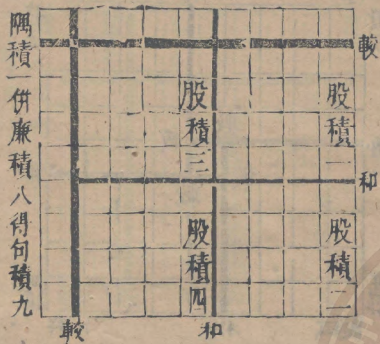 較
和
股積一
股積二
股積三
股積四
和
較
隅積一併廉積八得句積九